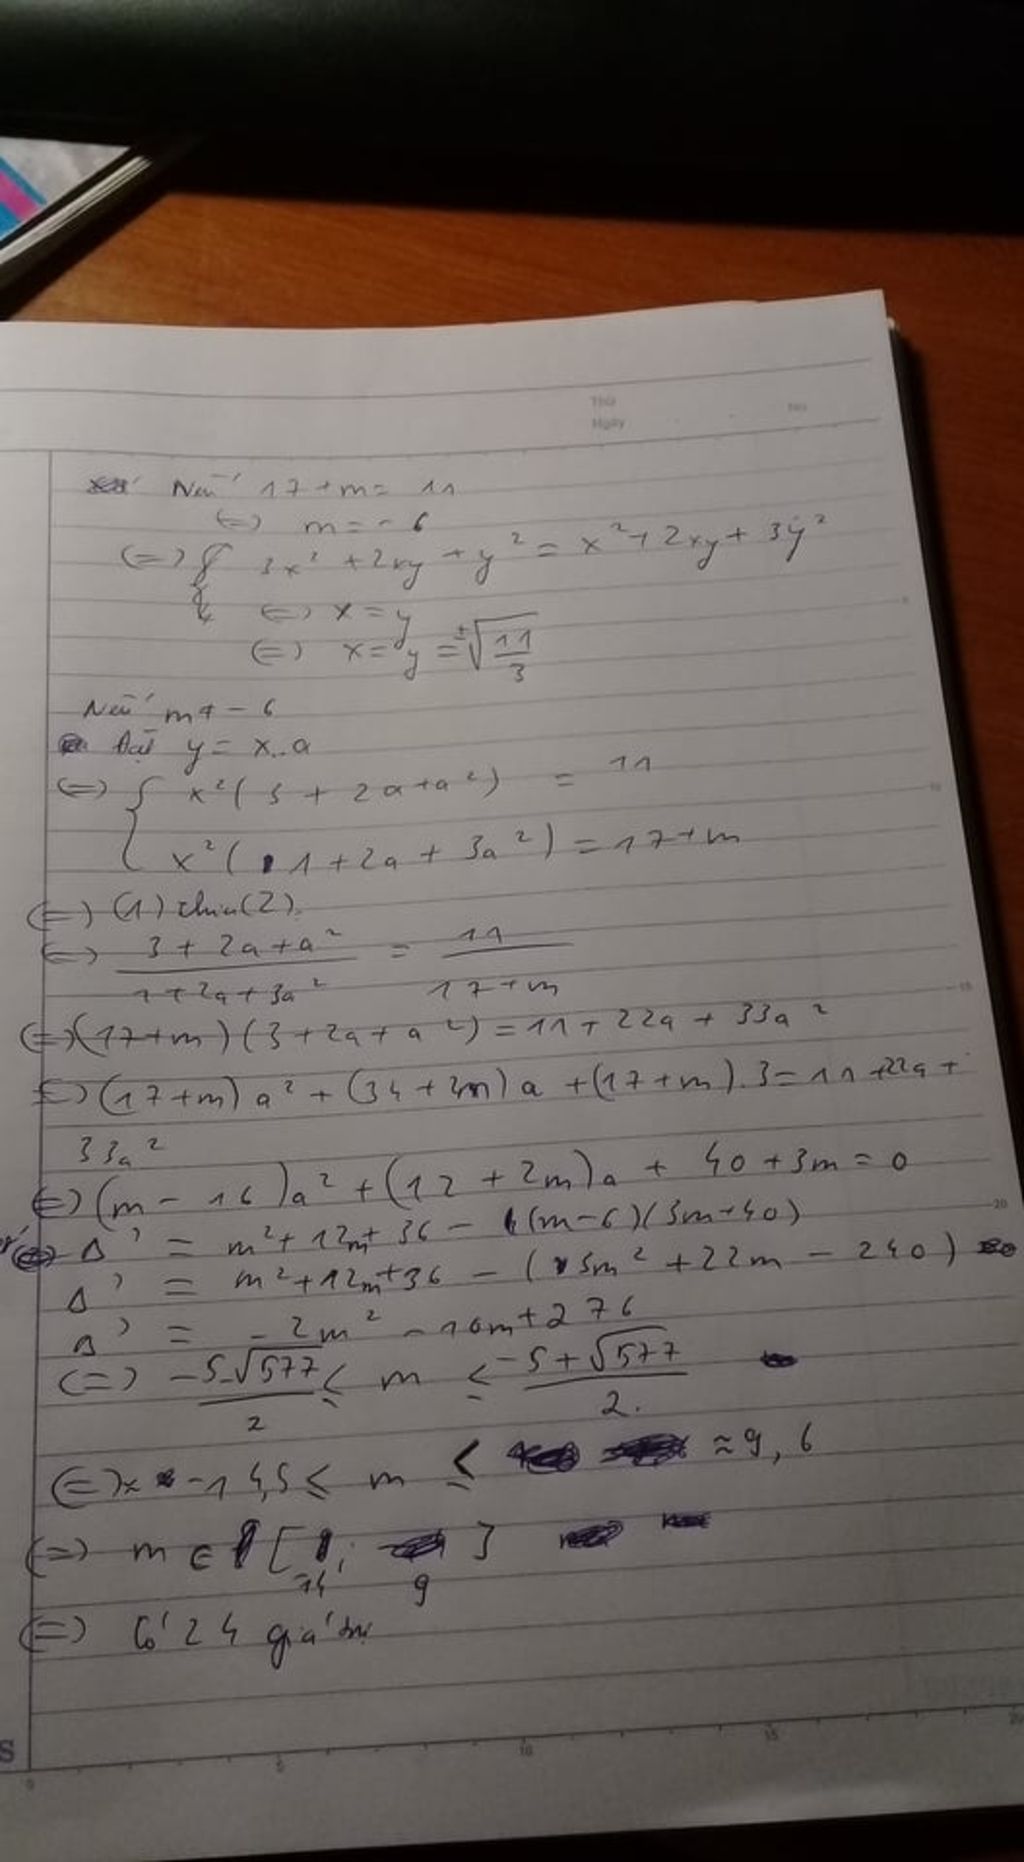 Thứ
Ngày
No
Nếu 17+m= 11
(=) m=-6
(=) 3x²+2xy+y²=x²+2xy+3y²
(=) x=y
(=) x=y=±√(11/3)
Nếu m≠-6
Đặt y=x.a
(=) { x²(3+2a+a²) = 11
x²(1+2a+3a²)=17+m
(=) (1) chia(2)
(=) (3+2a+a²)/(1+2a+3a²) = 11/(17+m)
(=)(17+m)(3+2a+a²)=11+22a+33a²
(=)(17+m)a²+(34+2m)a+(17+m).3=11+22a+
33a²
(=)(m-16)a²+(12+2m)a+40+3m=0
Δ' = m²+12m+36-(m-6)(3m+40)
Δ' = m²+12m+36-(3m²+22m-240)
Δ' = -2m²-10m+276
(=) (-5-√577)/2 ≤ m ≤ (-5+√577)/2.
-14,5 ≤ m ≤ ≈9,6
(=) m∈[-14; 9]
(=) Có 24 giá trị
5
10
15
20
S
0 5 10 15 20